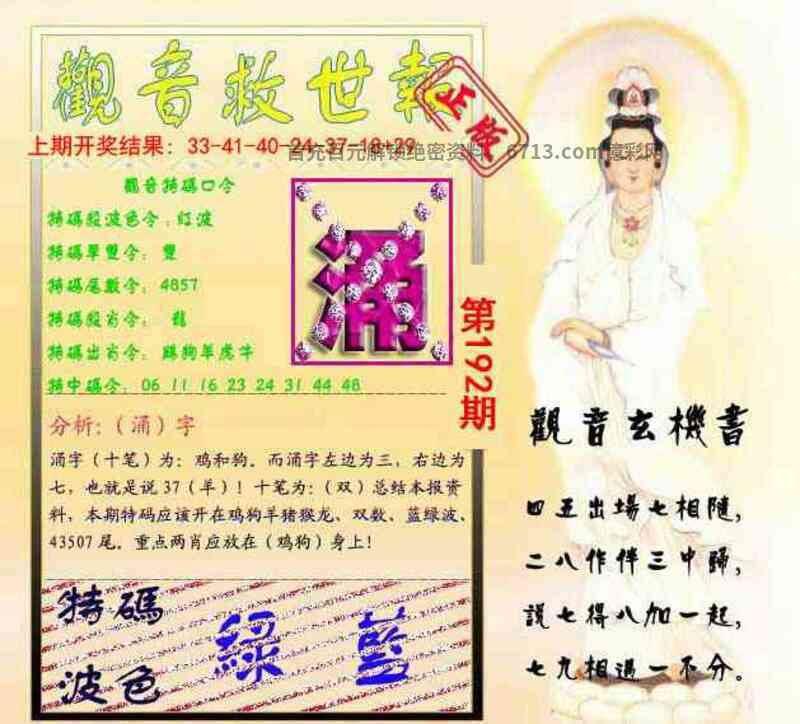 觀音救世報
正版
上期开奖结果：33-41-40-24-37-18+29
首充百元解锁绝密资料 6713.com
觀音特碼口令
特碼殺波色令：红波
特碼單雙令：雙
特碼尾數令：4857
特碼殺肖令：龍
特碼出肖令：雞狗羊虎牛
特中碼令：06 11 16 23 24 31 44 48
涌
第192期
分析:（涌）字
涌字（十笔）为：鸡和狗。而涌字左边为三，右边为
七，也就是说37（羊）！十笔为：（双）总结本报资
料，本期特码应该开在鸡狗羊猪猴龙、双数、蓝绿波、
43507尾。重点两肖应放在（鸡狗）身上！
特碼
波色
綠 藍
觀音玄機書
四五出場七相隨，
二八作伴三中歸，
說七得八加一起，
七九相遇一不分。